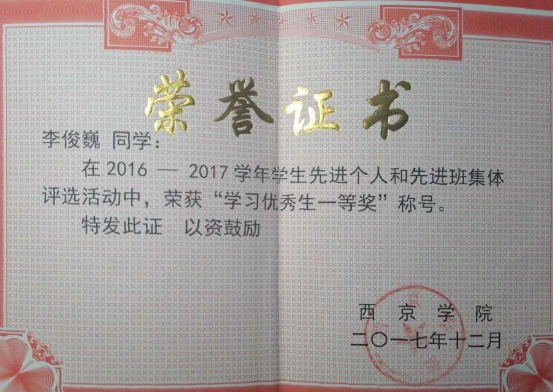 荣誉证书
李俊巍 同学：
在 2016 — 2017 学年学生先进个人和先进班集体
评选活动中，荣获“学习优秀生一等奖”称号。
特发此证 以资鼓励
西京学院
二〇一七年十二月